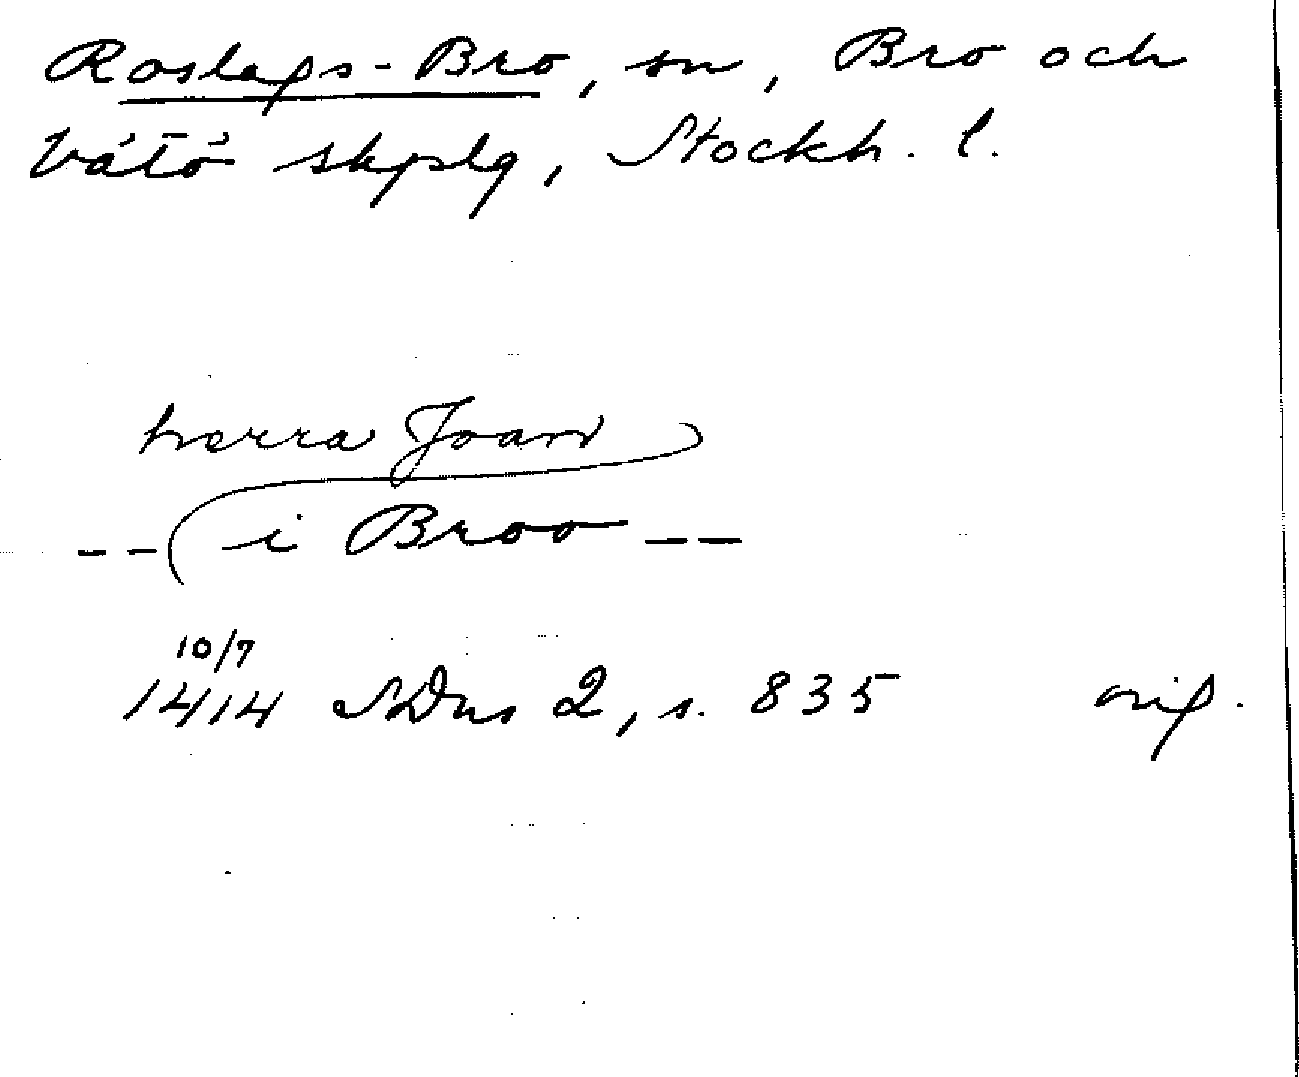 Roslags-Bro, sn, Bro och
Vätö skplg, Stockh. l.
herra Joan
-- i Broo --
10/7
1414 SDns 2, s. 835 orig.